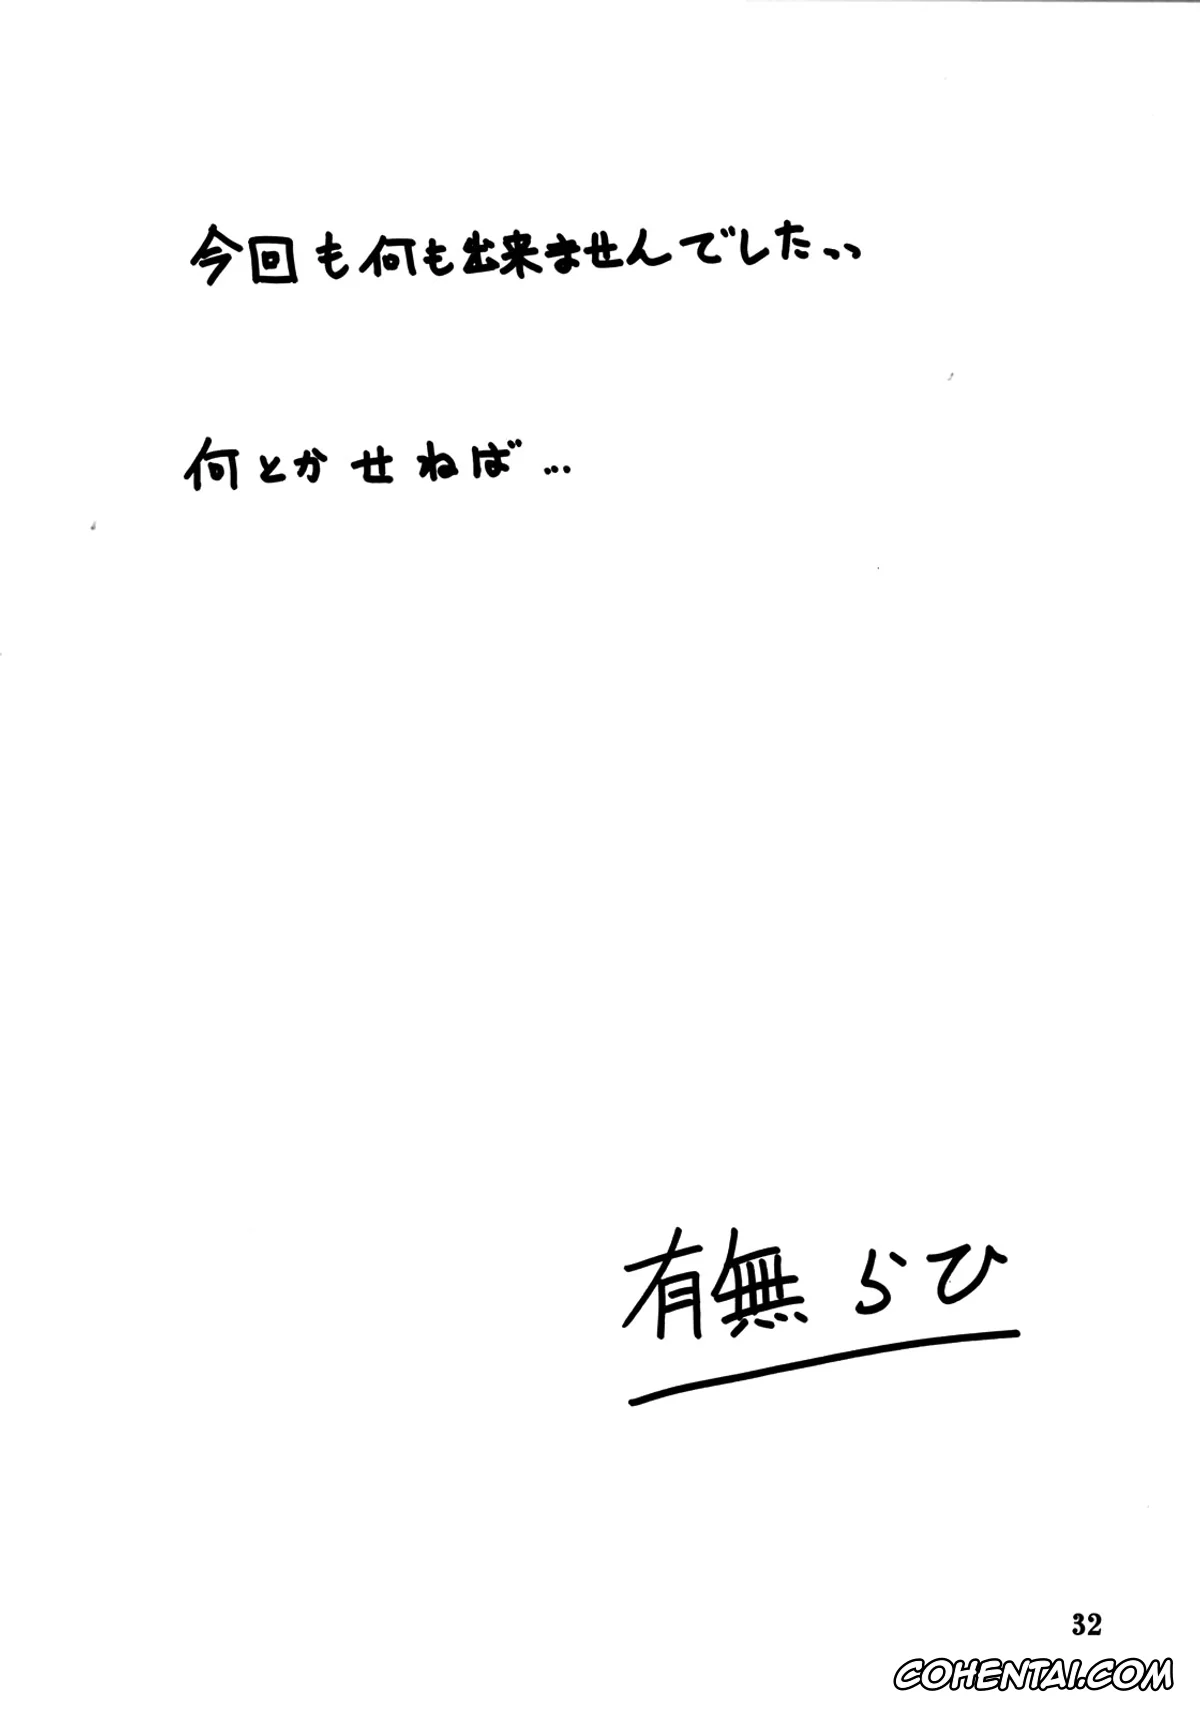 今回も何も出来ませんでしたっっ
何とかせねば…
有無らひ
32
COHENTAI.COM